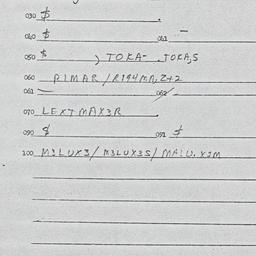 030 $
040 $ 041 —
050 $ ) TOKA- TOKA,S
060 RIMAR/R194MA,Z+2
061 062
070 LEXTMAX3R
090 $ 091 $
100 M3LUX3/M3LUX3S/MALU.X3M